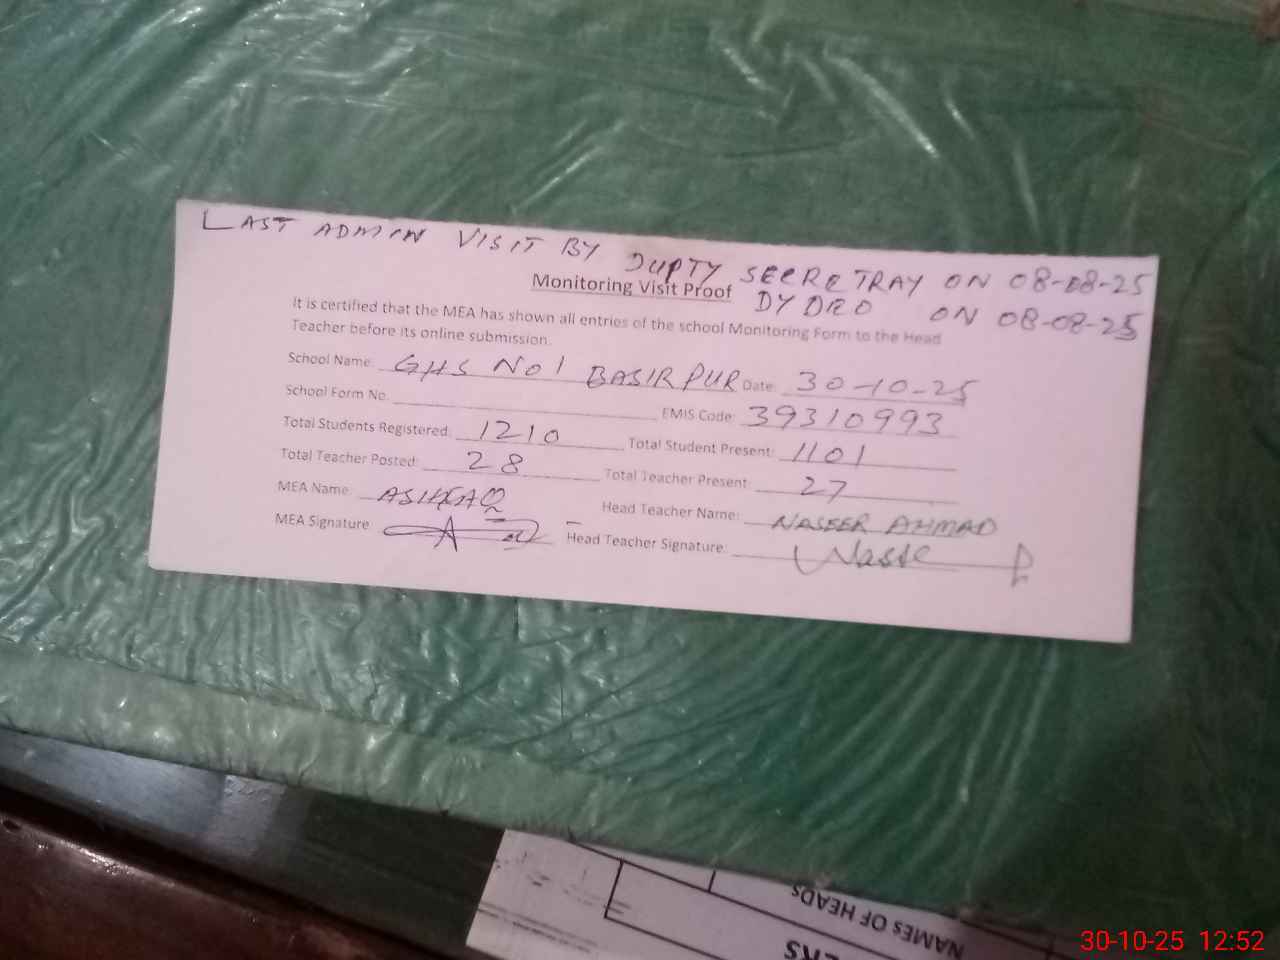 LAST ADMIN VISIT BY DUPTY SECRETRAY ON 08-08-25
DY DEO ON 08-08-25
Monitoring Visit Proof
It is certified that the MEA has shown all entries of the school Monitoring Form to the Head
Teacher before its online submission.
School Name: GHS NO 1 BASIRPUR Date: 30-10-25
School Form No. EMIS Code: 39310993
Total Students Registered: 1210 Total Student Present: 1101
Total Teacher Posted: 28 Total Teacher Present: 27
MEA Name: ASHFAQ Head Teacher Name: NASEER AHMAD
MEA Signature Head Teacher Signature:
NAMES OF HEADs
ERS
30-10-25 12:52